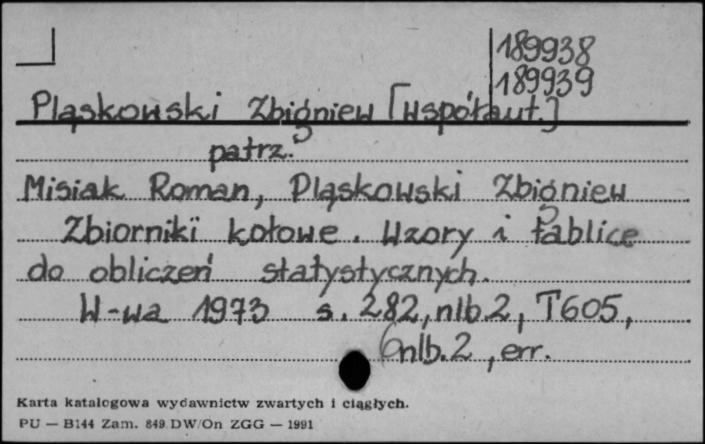 189938
189939
Pląskowski Zbigniew [współaut.]
patrz.
Misiak Roman, Pląskowski Zbigniew
Zbiorniki kołowe. Wzory i tablice
do obliczeń statystycznych.
W-wa 1973 s. 282, nlb.2, T605,
nlb.2, err.
Karta katalogowa wydawnictw zwartych i ciągłych.
PU — B144 Zam. 849 DW/On ZGG — 1991